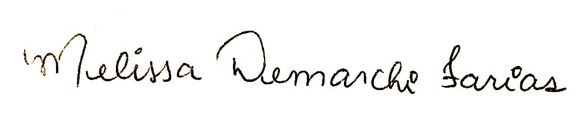 Melissa Demarchi Farias